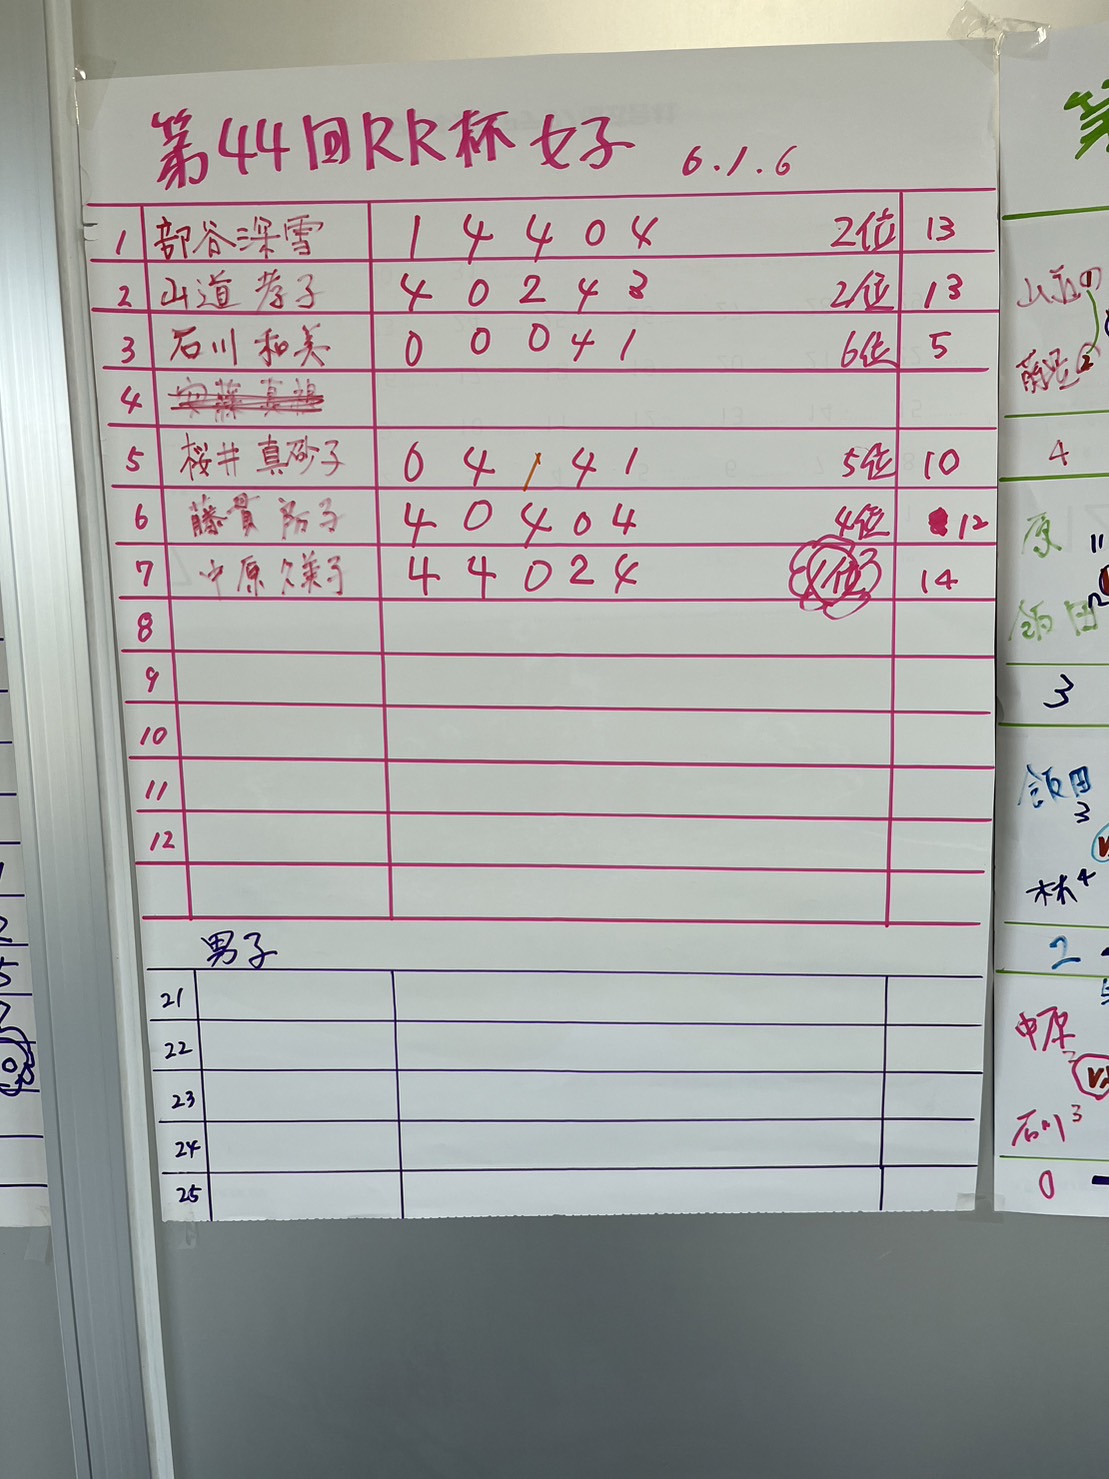 第44回RR杯女子 6.1.6
1 部谷深雪 1 4 4 0 4 2位 13
2 山道 孝子 4 0 2 4 3 2位 13
3 石川 和美 0 0 0 4 1 6位 5
4
5 桜井 真砂子 0 4 1 4 1 5位 10
6 藤貫 4 0 4 0 4 4位 12
7 中原 久美子 4 4 0 2 4 1位 14
8
9
10
11
12
男子
21
22
23
24
25
4
原
飯田
3
飯田
3
林 4
2
中原
2
石川 3
0